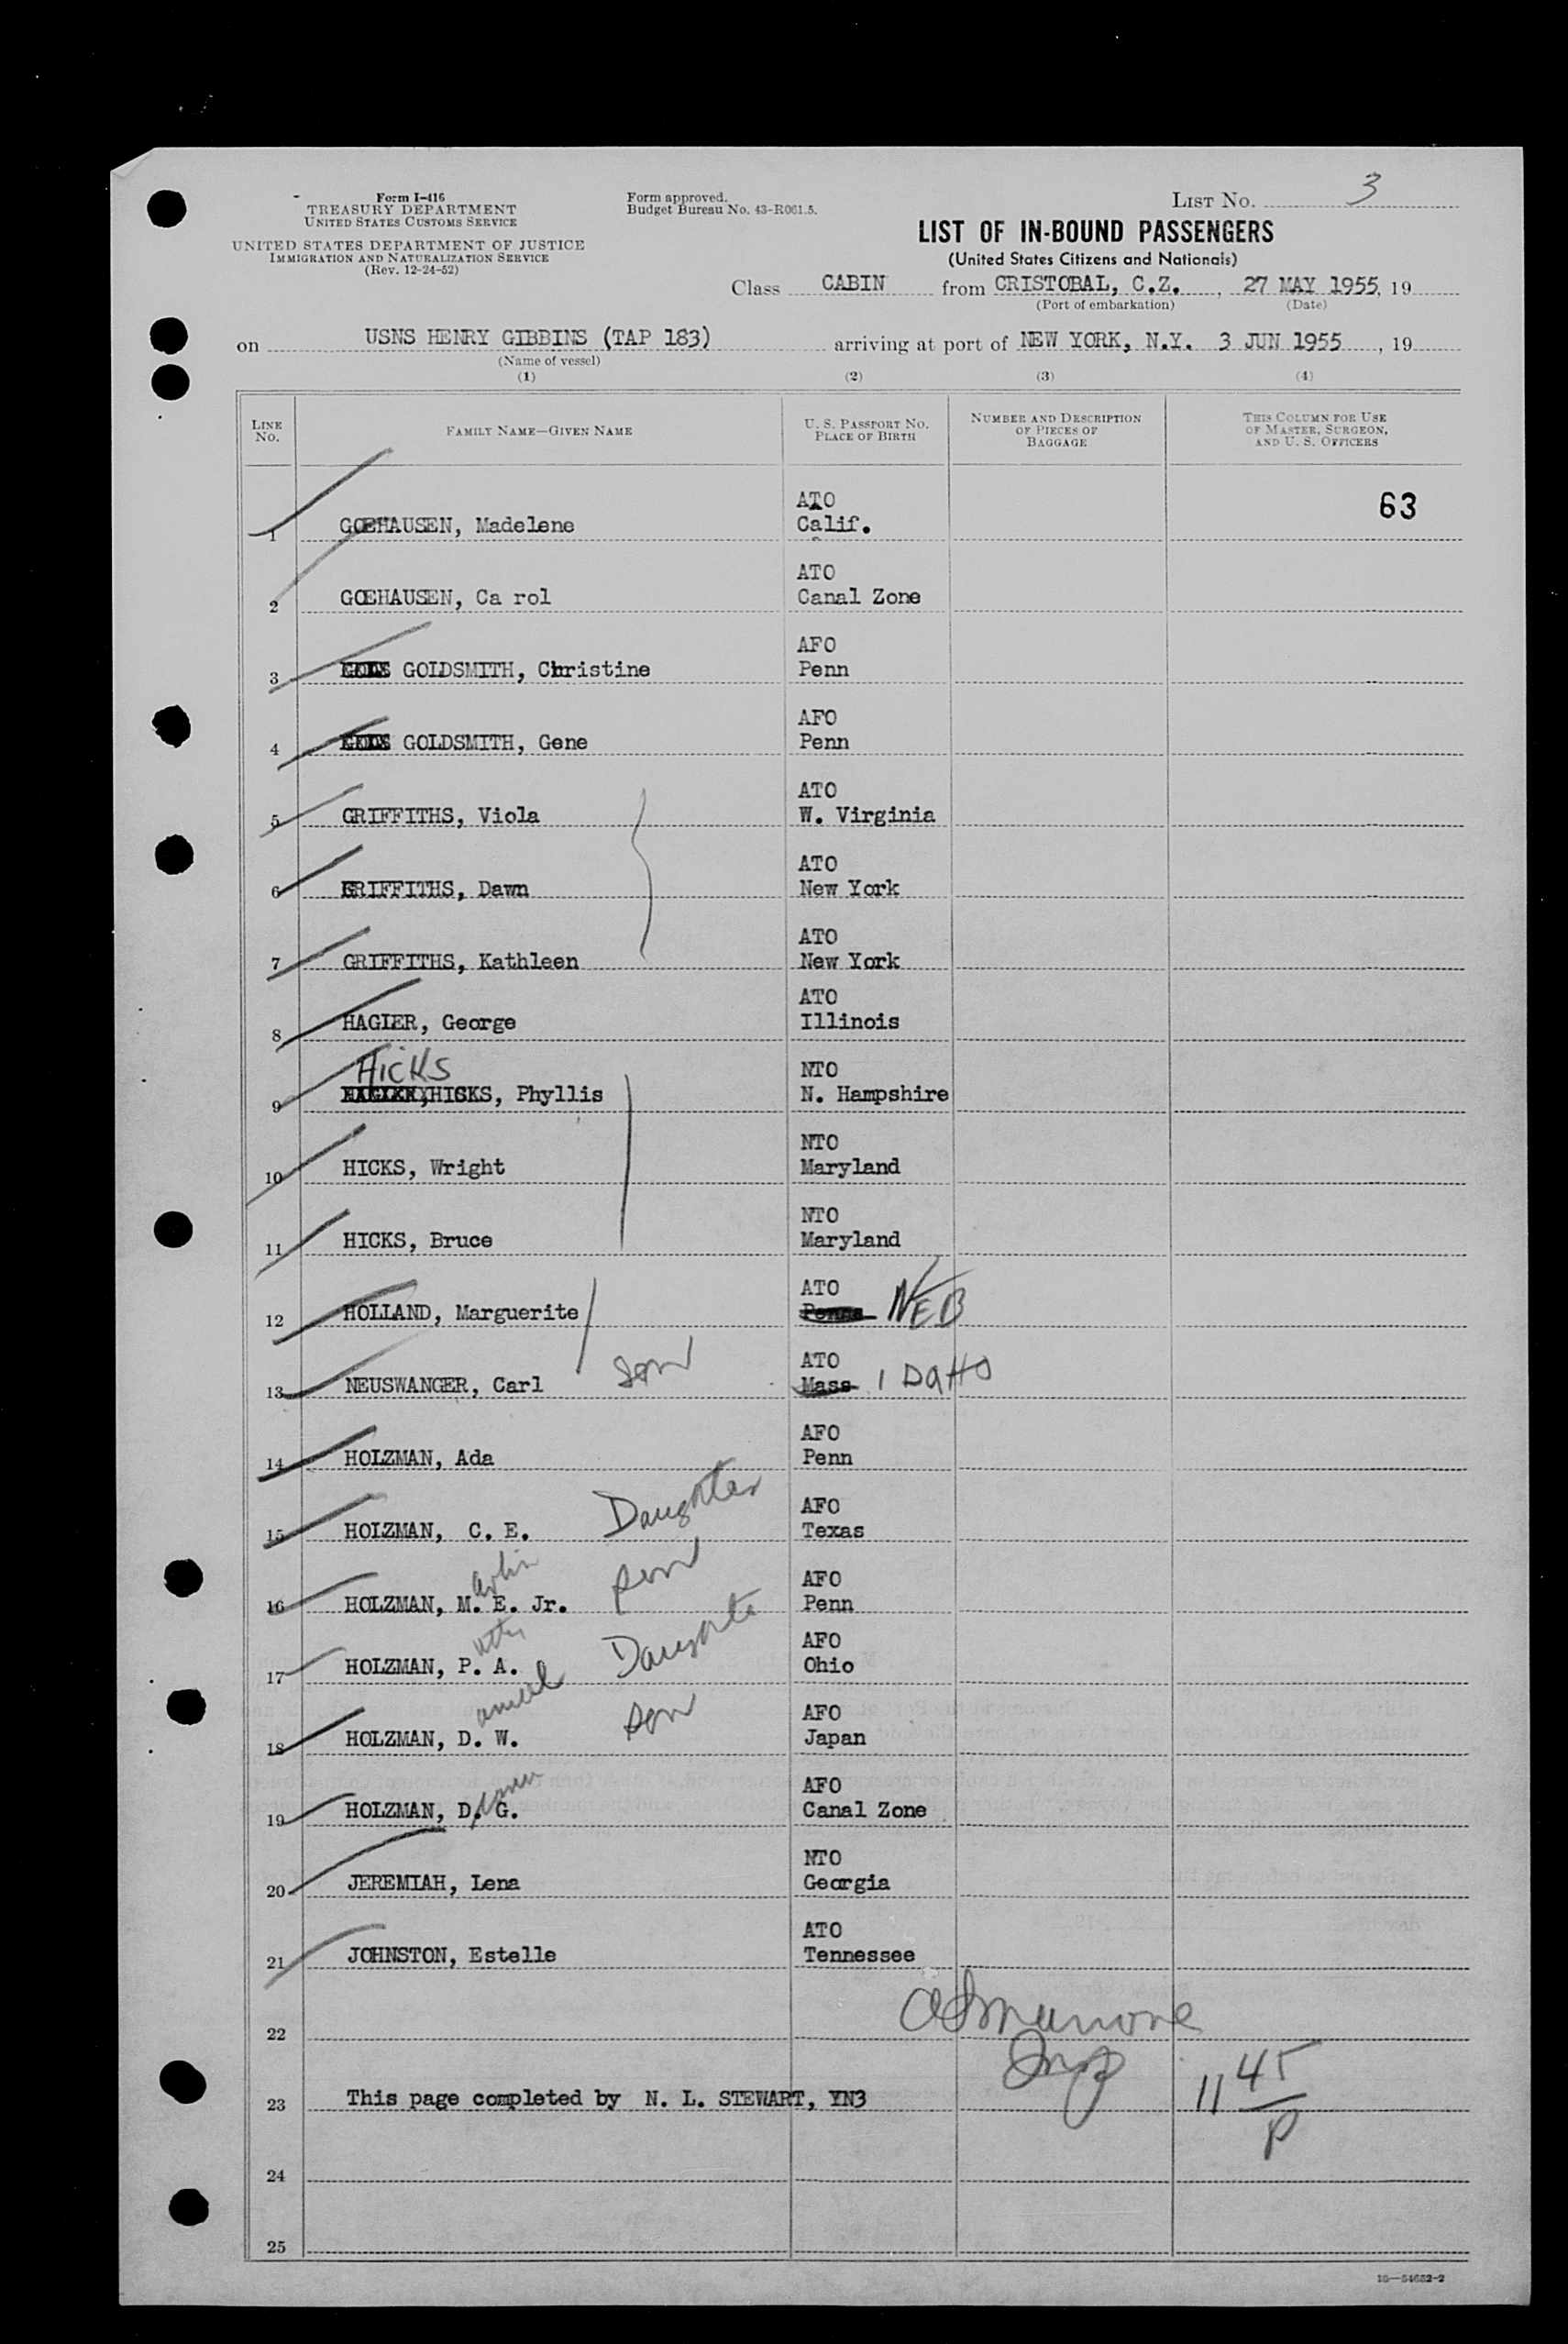 Form I-416
TREASURY DEPARTMENT
UNITED STATES CUSTOMS SERVICE
UNITED STATES DEPARTMENT OF JUSTICE
IMMIGRATION AND NATURALIZATION SERVICE
(Rev. 12-24-52)
Form approved.
Budget Bureau No. 43-R061.5.
LIST NO. 3
LIST OF IN-BOUND PASSENGERS
(United States Citizens and Nationals)
Class CABIN from CRISTOBAL, C.Z., 27 MAY 1955, 19
(Port of embarkation) (Date)
on USNS HENRY GIBBINS (TAP 183) arriving at port of NEW YORK, N.Y. 3 JUN 1955, 19
(Name of vessel)
(1) (2) (3) (4)
LINE NO. FAMILY NAME—GIVEN NAME U. S. PASSPORT NO. PLACE OF BIRTH NUMBER AND DESCRIPTION OF PIECES OF BAGGAGE THIS COLUMN FOR USE OF MASTER, SURGEON, AND U. S. OFFICERS
ATO 63
1 GOEHAUSEN, Madelene Calif.
ATO
2 GOEHAUSEN, Ca rol Canal Zone
AFO
3 GOLDSMITH, Christine Penn
AFO
4 GOLDSMITH, Gene Penn
ATO
5 GRIFFITHS, Viola W. Virginia
ATO
6 GRIFFITHS, Dawn New York
ATO
7 GRIFFITHS, Kathleen New York
ATO
8 HAGIER, George Illinois
HICKS NTO
9 HICKS, Phyllis N. Hampshire
NTO
10 HICKS, Wright Maryland
NTO
11 HICKS, Bruce Maryland
ATO
12 HOLLAND, Marguerite Penna NEB
ATO
13 NEUSWANGER, Carl son Mass IDaHO
AFO
14 HOLZMAN, Ada Penn
AFO
15 HOLZMAN, C. E. Daughter Texas
arlin AFO
16 HOLZMAN, M. E. Jr. son Penn
AFO
17 HOLZMAN, P. A. Daughte Ohio
aniel AFO
18 HOLZMAN, D. W. son Japan
AFO
19 HOLZMAN, D. G. Canal Zone
NTO
20 JEREMIAH, Lena Georgia
ATO
21 JOHNSTON, Estelle Tennessee
22
Insp 11 45/P
23 This page completed by N. L. STEWART, YN3
24
25
16—54652-2